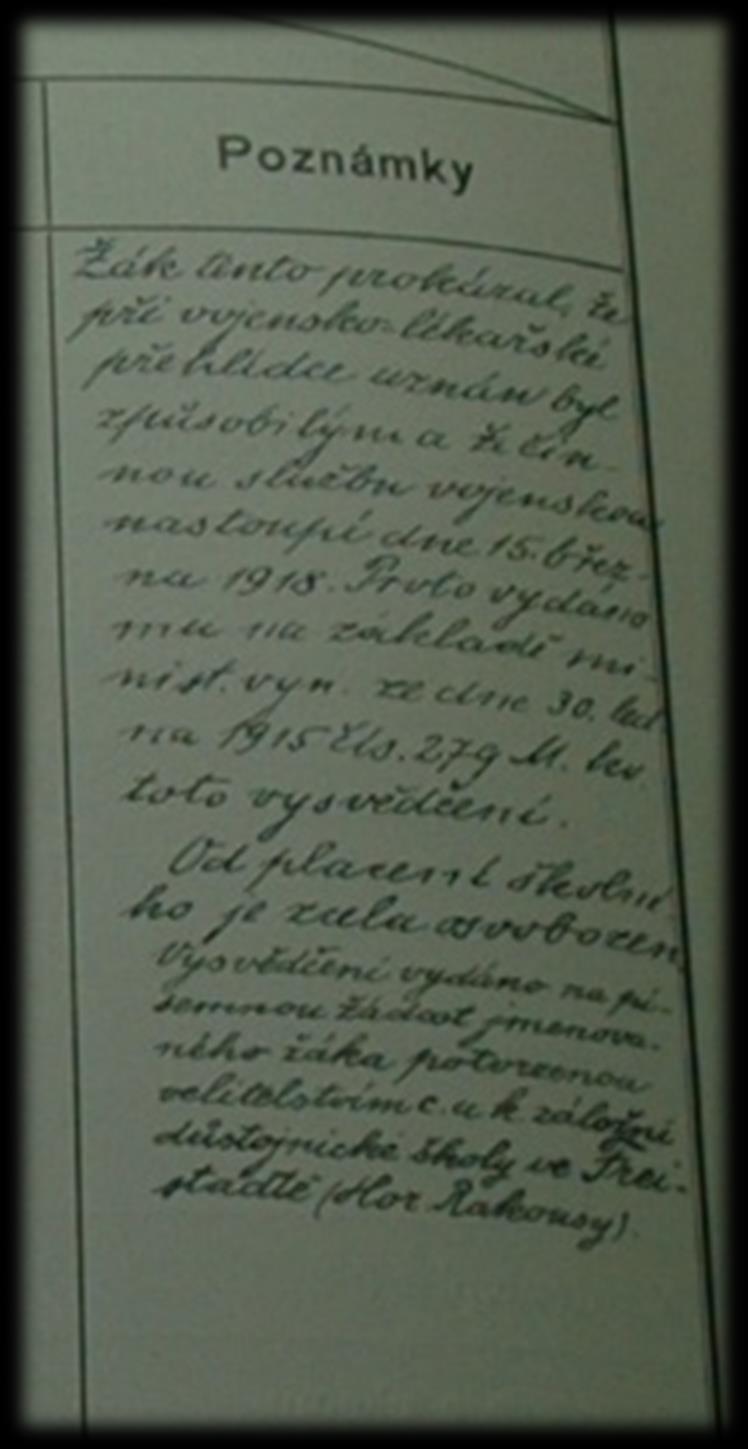 Poznámky
Žák tento prokázal, že
při vojensko-lékařské
přehlídce uznán byl
způsobilým a že čin-
nou službu vojenskou
nastoupí dne 15. břez-
na 1918. Proto vydáno
mu na základě mi-
nist. vyn. ze dne 30. led
na 1915 čís. 279 M. kv.
toto vysvědčení.
Od placení školné-
ho je zcela osvobozen.
Vysvědčení vydáno na pí-
semnou žádost jmenova-
ného žáka potvrzenou
velitelstvím c. u k. záložní
důstojnické školy ve Frei-
stadtě (Hor. Rakousy).